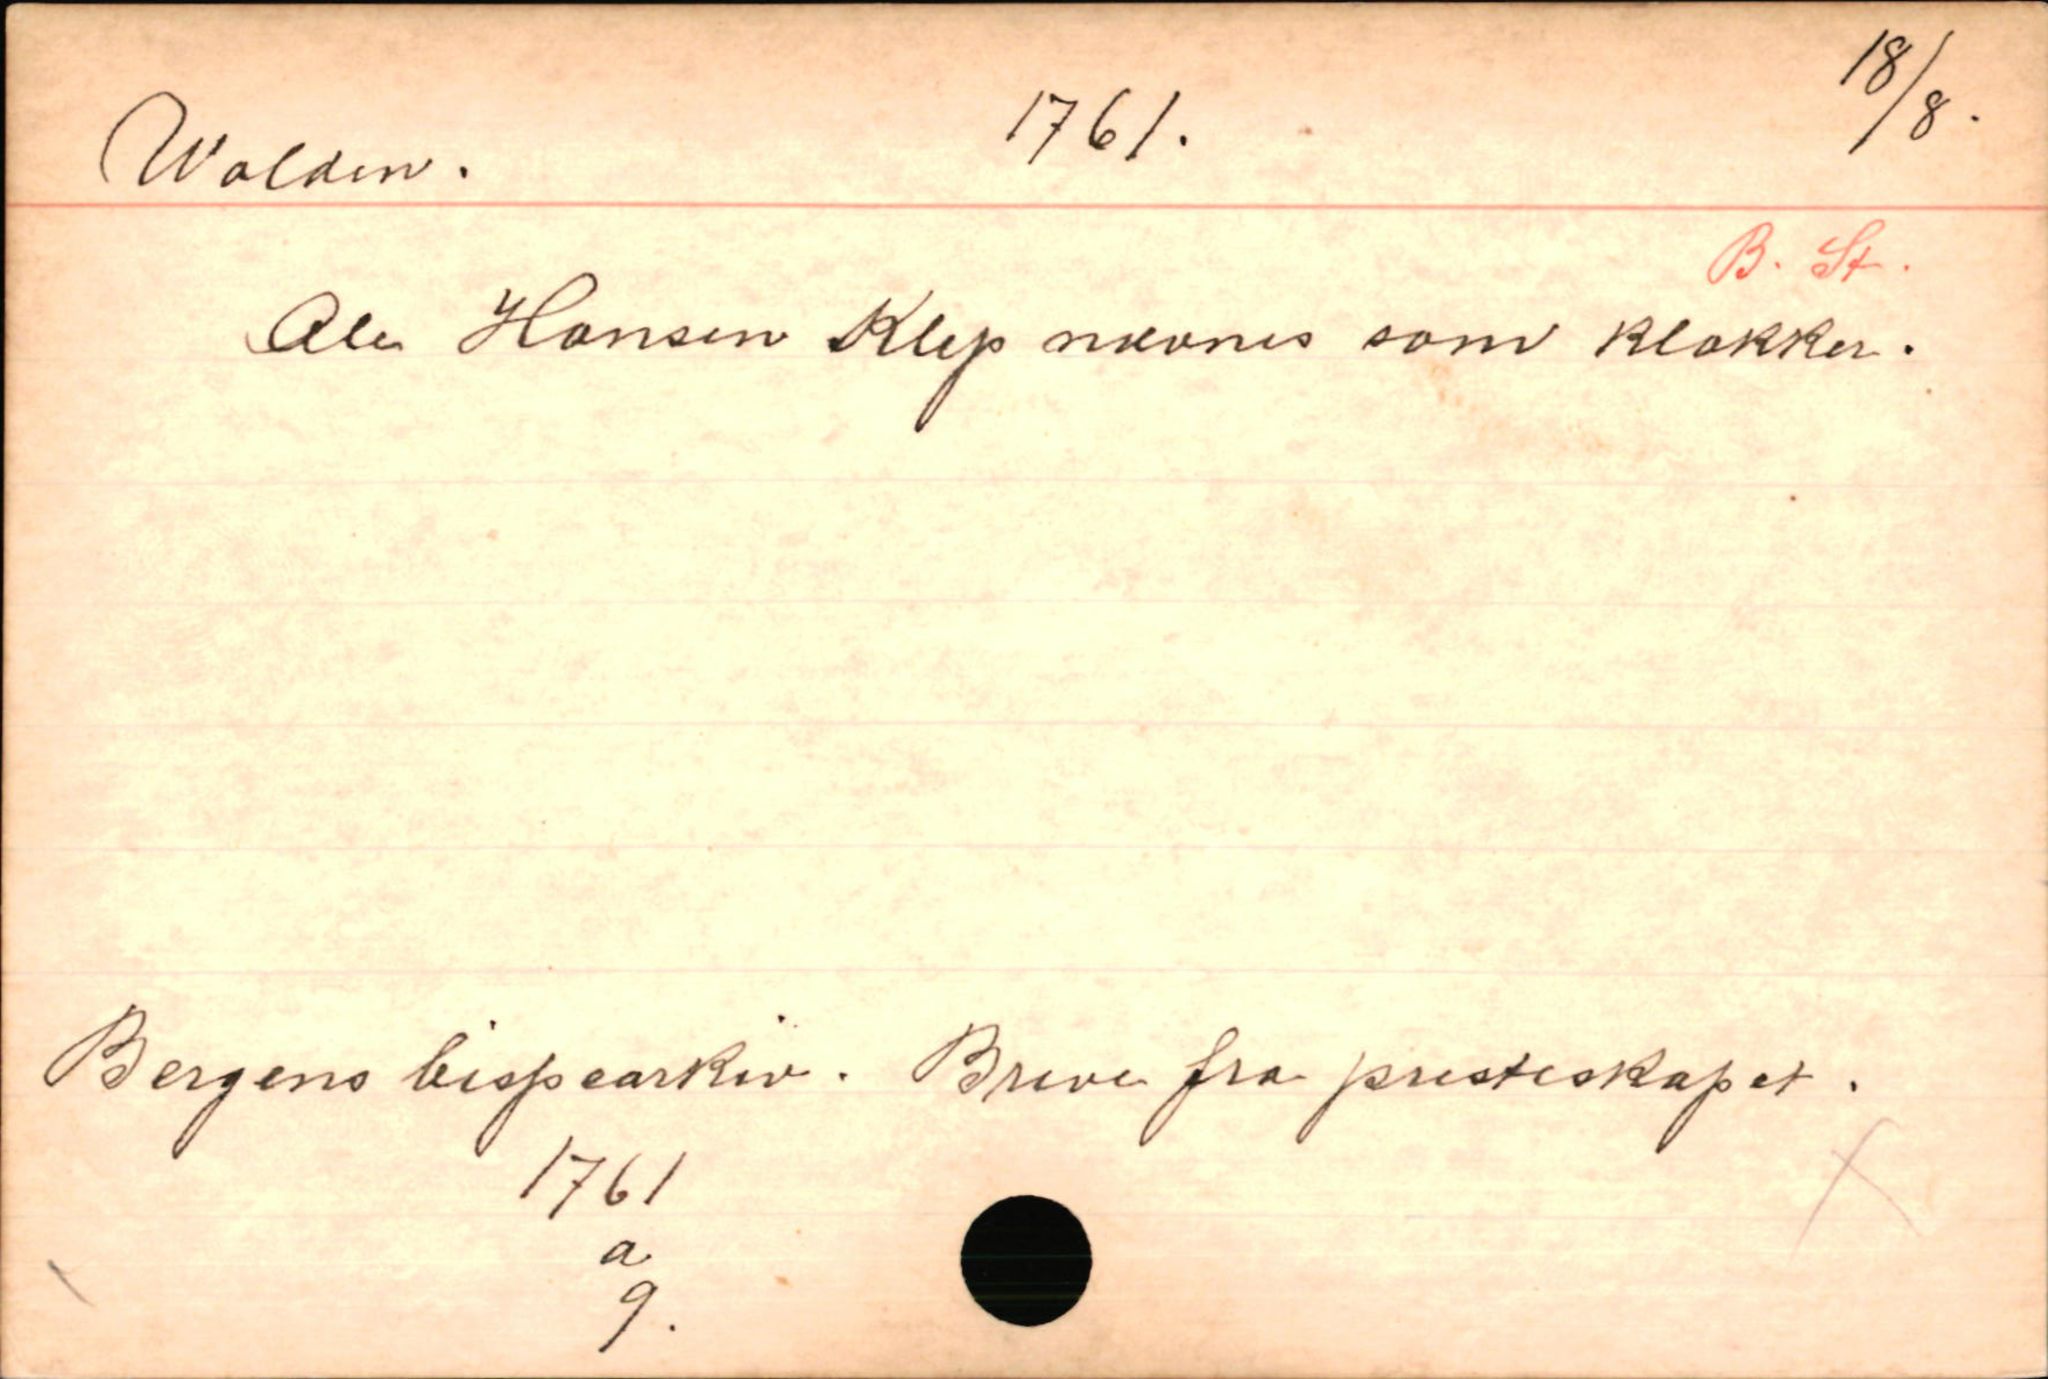 Wolden. 1761. 18/8.
B. St.
Ole Hansen Klep nævnes som klokker.
Bergens bispearkiv. Breve fra presteskapet.
1761
a
9.